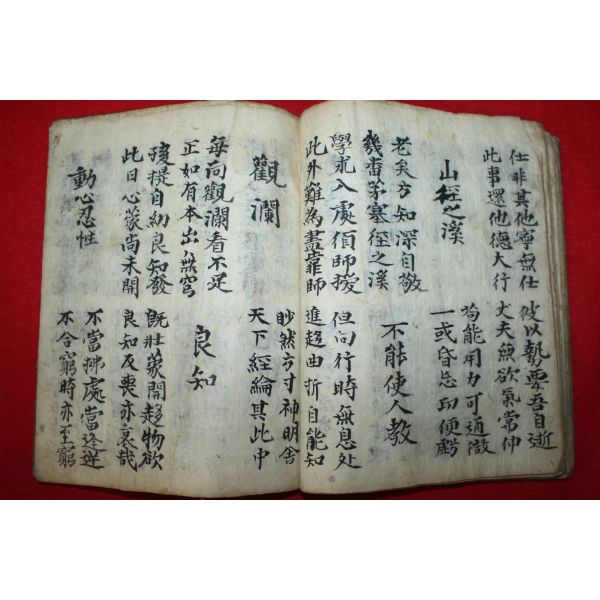 仕非其他寧無仕
此事還他德大行
彼以執要吾自逝
丈夫無欲氣常伸
山徑之溪
老矣方知深自敬
幾番茅塞徑之溪
為能用力可通徹
一或昏忘即便虧
不能使人教
學求入處須師援
此外難為盡靠師
但向行時無息处
進趍由折自能知
觀瀾
每向觀瀾看不足
正如有本出無窮
眇然方寸神明舎
天下經綸其此中
良知
孩提自幼良知發
此日心蒙尚未開
既壯蒙開趍物欲
良知反喪亦哀哉
動心忍性
不當拂處當逢逆
不合窮時亦至窮